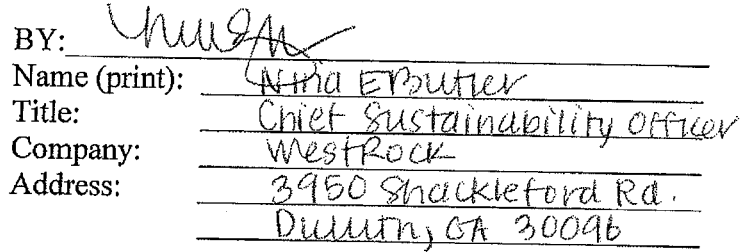 BY:
Name (print): Nina E Butler
Title: Chief Sustainability Officer
Company: WestRock
Address: 3950 Shackleford Rd.
Duluth, GA 30096